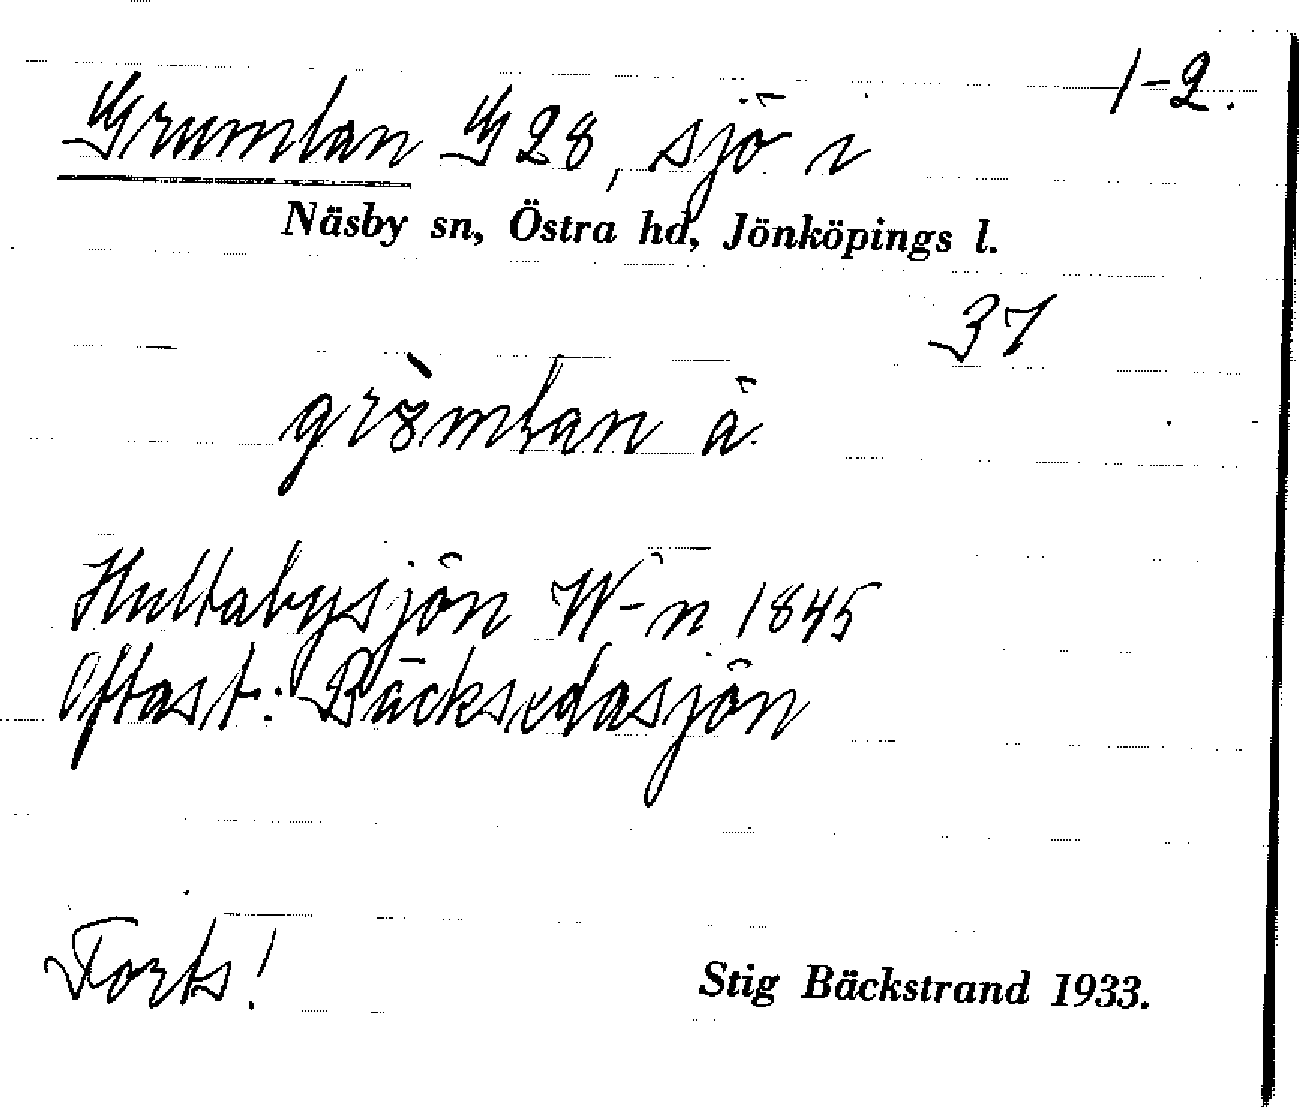 1-2.
Grumlan G 28, sjö i
Näsby sn, Östra hd, Jönköpings l.
37
gròmlan ä
Hultabysjön W-n 1845
Oftast: Bäcksedasjön
Forts!
Stig Bäckstrand 1933.